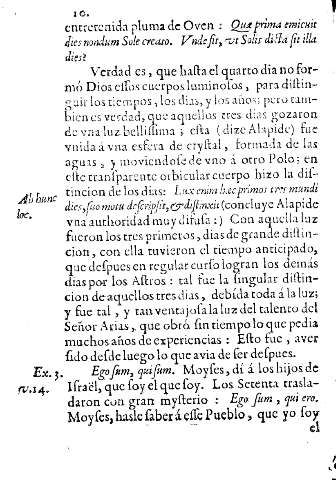 10.
entretenida pluma de Oven : Quæ prima emicuit
dies nondum Sole creato. Vnde sit, vt Solis dicta sit illa
dies?
Verdad es, que hasta el quarto dia no for-
mó Dios essos cuerpos luminosos, para distin-
guir los tiempos, los dias, y los años; pero tam-
bien es verdad, que aquellos tres dias gozaron
de vna luz bellissima; esta (dize Alapide) fue
vnida á vna esfera de crystal, formada de las
aguas, y moviendose de vno á otro Polo; en
este transparente orbicular cuerpo hizo la dis-
tincion de los dias: Lux enim hæc primos tres mundi
dies, suo motu descripsit, & distinxit (concluye Alapide
vna authoridad muy difusa:) Con aquella luz
fueron los tres primeros, dias de grande distin-
cion, con ella tuvieron el tiempo anticipado,
que despues en regular curso logran los demás
dias por los Astros: tal fue la singular distin-
cion de aquellos tres dias, debida toda á la luz;
y fue tal, y tan ventajosa la luz del talento del
Señor Arias, que obró sin tiempo lo que pedia
muchos años de experiencias: Esto fue, aver
sido desde luego lo que avia de ser despues.
Ego sum, qui sum. Moyses, dí á los hijos de
Israël, que soy el que soy. Los Setenta trasla-
daron con gran mysterio: Ego sum, qui ero.
Moyses, hasle saber á esse Pueblo, que yo soy
el
Ab hunc
loc.
Ex. 3.
v. 14.